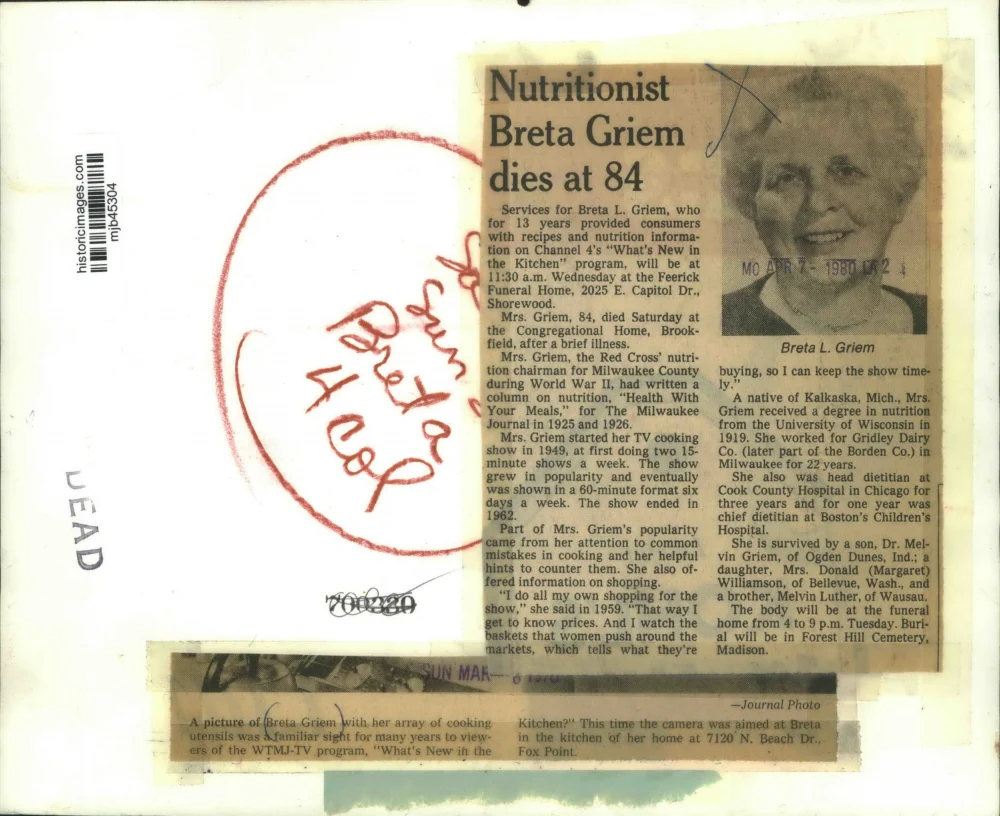 historicimages.com
mjb45304
DEAD
Sun
Breta
4 Col
700330
Nutritionist
Breta Griem
dies at 84
Services for Breta L. Griem, who
for 13 years provided consumers
with recipes and nutrition informa-
tion on Channel 4's "What's New in
the Kitchen" program, will be at
11:30 a.m. Wednesday at the Feerick
Funeral Home, 2025 E. Capitol Dr.,
Shorewood.
Mrs. Griem, 84, died Saturday at
the Congregational Home, Brook-
field, after a brief illness.
Mrs. Griem, the Red Cross' nutri-
tion chairman for Milwaukee County
during World War II, had written a
column on nutrition, "Health With
Your Meals," for The Milwaukee
Journal in 1925 and 1926.
Mrs. Griem started her TV cooking
show in 1949, at first doing two 15-
minute shows a week. The show
grew in popularity and eventually
was shown in a 60-minute format six
days a week. The show ended in
1962.
Part of Mrs. Griem's popularity
came from her attention to common
mistakes in cooking and her helpful
hints to counter them. She also of-
fered information on shopping.
"I do all my own shopping for the
show," she said in 1959. "That way I
get to know prices. And I watch the
baskets that women push around the
markets, which tells what they're
MO APR 7- 1980
Breta L. Griem
buying, so I can keep the show time-
ly."
A native of Kalkaska, Mich., Mrs.
Griem received a degree in nutrition
from the University of Wisconsin in
1919. She worked for Gridley Dairy
Co. (later part of the Borden Co.) in
Milwaukee for 22 years.
She also was head dietitian at
Cook County Hospital in Chicago for
three years and for one year was
chief dietitian at Boston's Children's
Hospital.
She is survived by a son, Dr. Mel-
vin Griem, of Ogden Dunes, Ind.; a
daughter, Mrs. Donald (Margaret)
Williamson, of Bellevue, Wash., and
a brother, Melvin Luther, of Wausau.
The body will be at the funeral
home from 4 to 9 p.m. Tuesday. Buri-
al will be in Forest Hill Cemetery,
Madison.
SUN MAR
—Journal Photo
A picture of Breta Griem with her array of cooking
utensils was a familiar sight for many years to view-
ers of the WTMJ-TV program, "What's New in the
Kitchen?" This time the camera was aimed at Breta
in the kitchen of her home at 7120 N. Beach Dr.,
Fox Point.